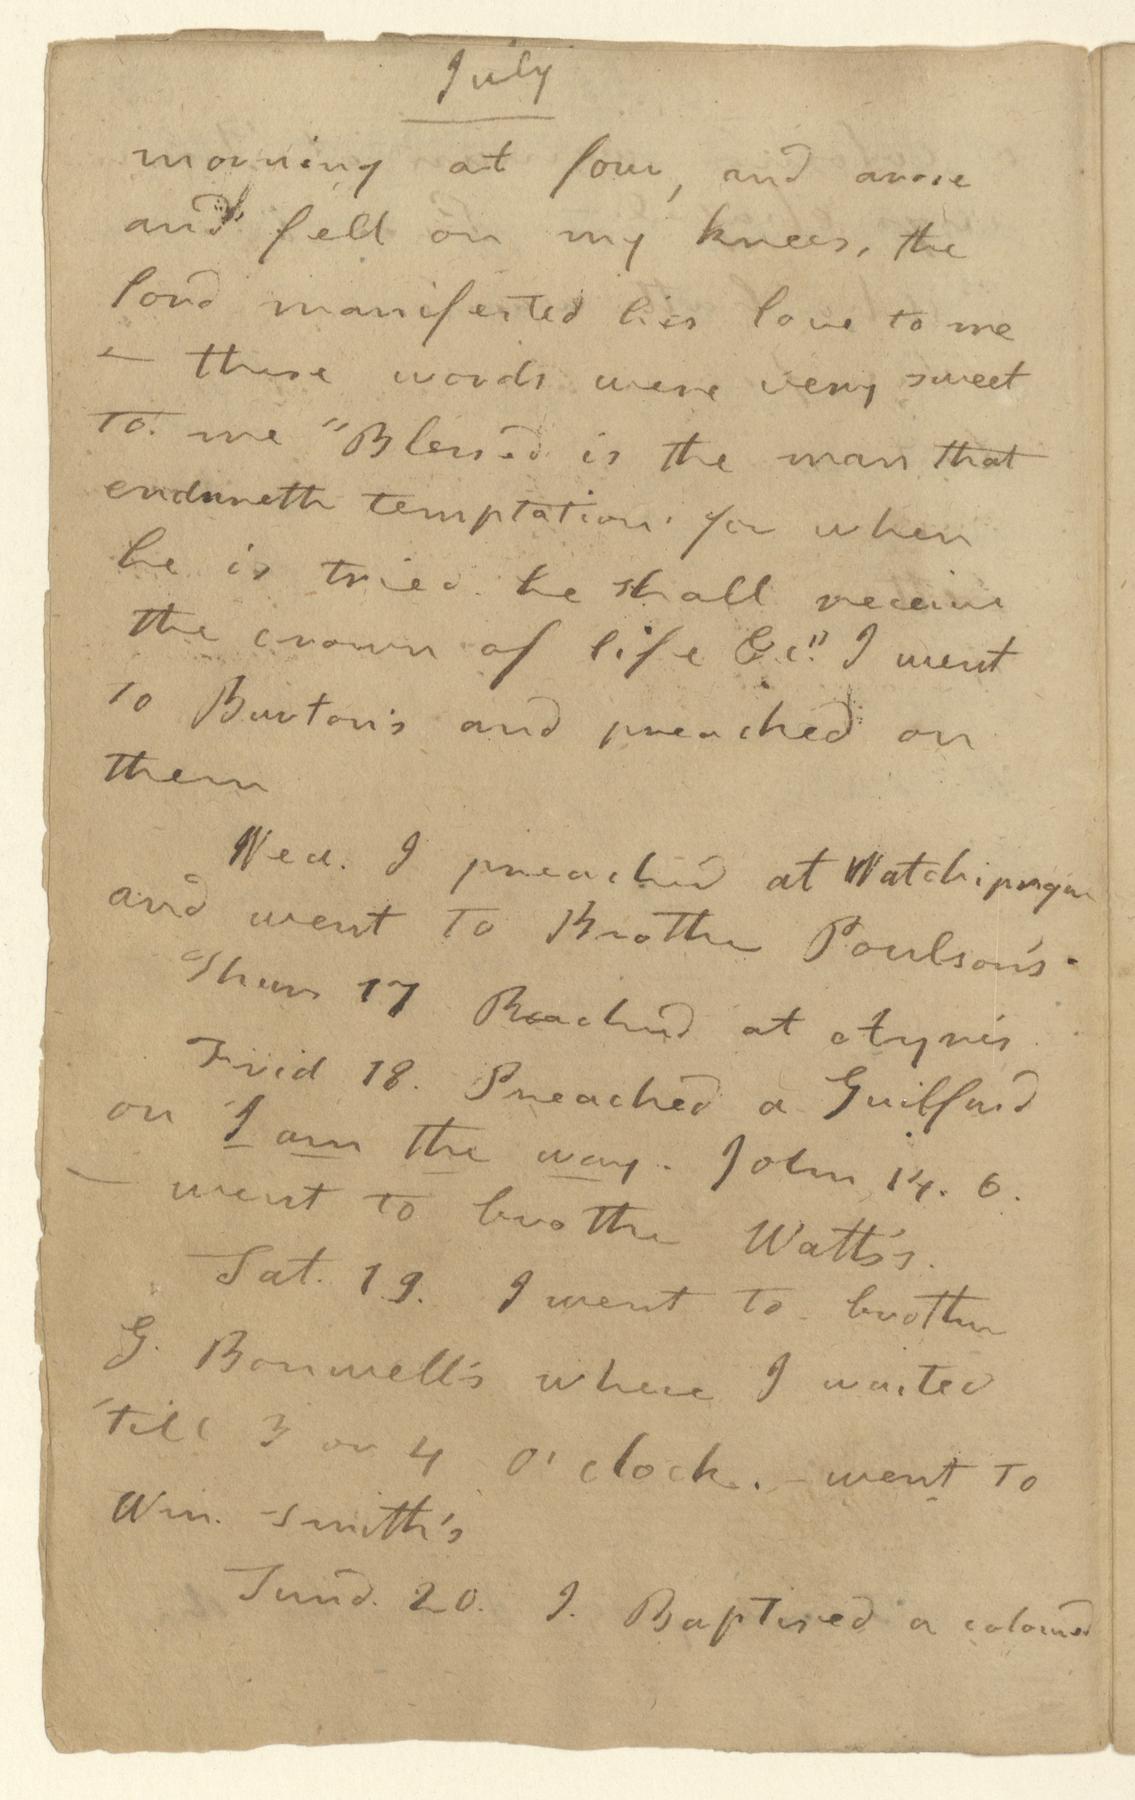 July
morning at four, and arose
and fell on my knees, the
lord manifested his love to me
— these words were very sweet
to me "Blessed is the man that
endureth temptation. for when
he is tried he shall receive
the crown of life &c." I went
to Burton's and preached on
them
Wed. I preached at Watchiprigue
and went to Brother Poulson's.
Thurs 17 Preached at Ayre's
Frid 18. Preached a Guilford
on I am the way. John 14. 6.
— went to brother Watts's.
Sat. 19. I went to brother
G. Bonwell's where I waited
'till 3 or 4 O'clock. – went to
Wm. Smith's
Sund. 20. I. Baptised a coloured